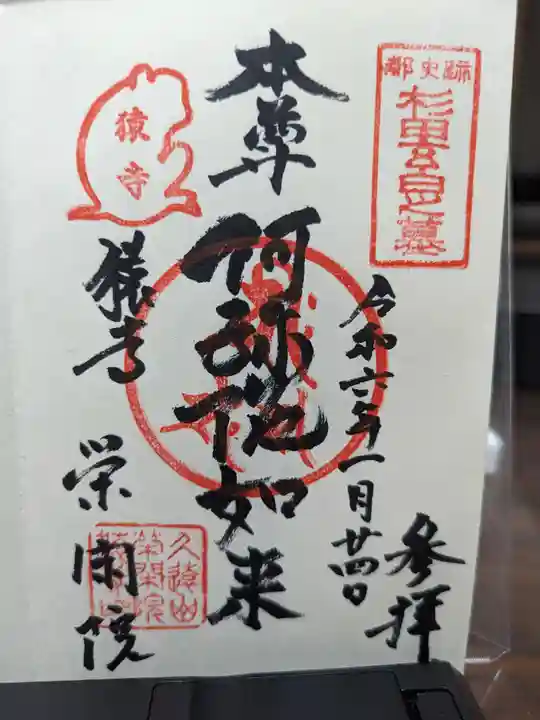 都史跡
杉田玄白之墓
参拝
令和六年一月廿四日
本尊
阿弥陀如来
猿寺
猿寺
栄閑院
久遠山
栄閑院